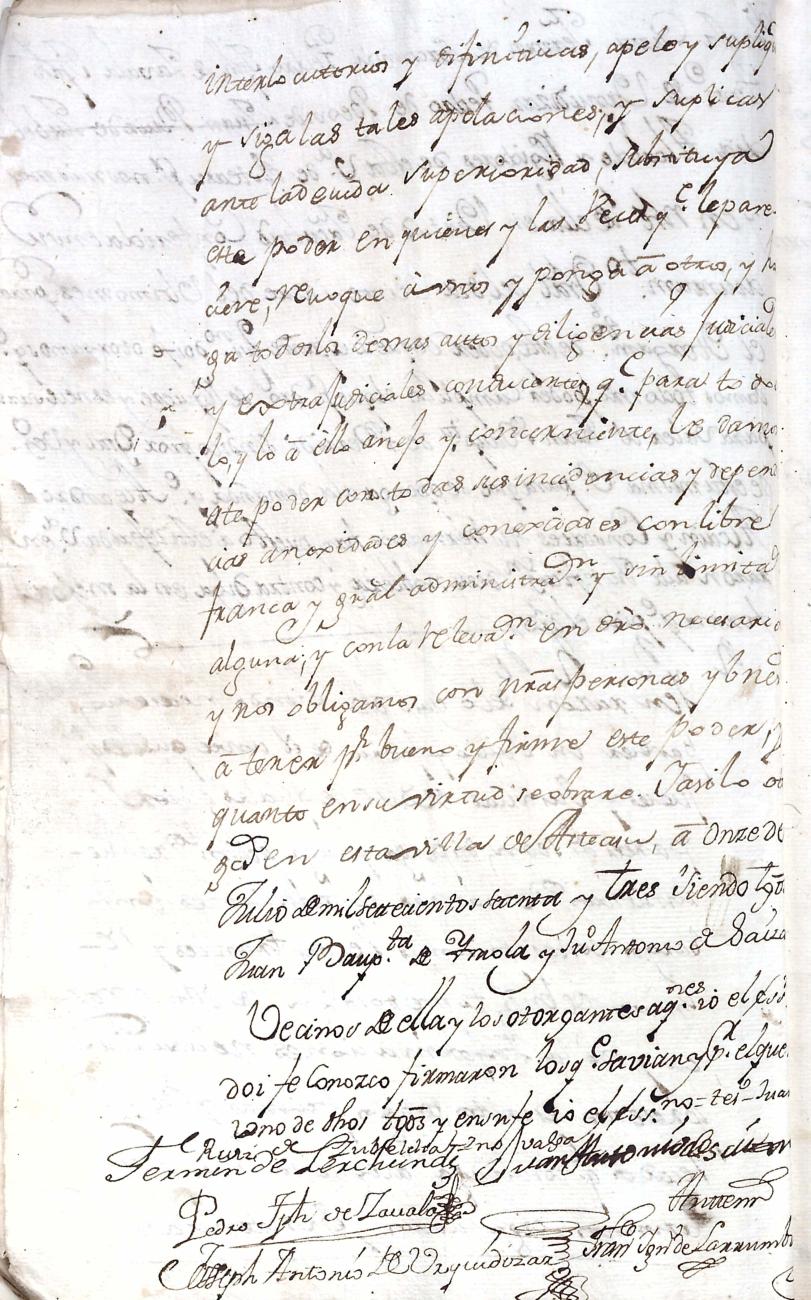 interlocutorios y difinitivas, apele y supliq
y siga las tales apelaciones, y suplicas
ante la devida superioridad, substituya
este poder en quienes y las veces q.e le pare
ciere, revoque à unos y ponga à otros, y h
ga todos los demas autos y diligencias Judiciale
y extraJudiciales conducentes, q.e para todo
lo, y lo à ello anejo y concerniente, le damo
este poder con todas sus incidencias y depen
cias anexidades y conexidades con libre
franca y gral administra.on y sin limita
alguna, y con la releva.on en dro necesario
y nos obligamos con nras personas y bnes
à tener p.r bueno y firme este poder, y
quanto en su virtud se obrare. Y asi lo o
g.en esta villa de Arteaga, à onze de
Julio de mil setecientos setenta y tres siendo tg
Juan Baup.ta de Ymola y Ju.o Antonio de
Vecinos de ella y los otorgantes a q.nes io el ess
doi fe conozco firmaron los q.e savian y p.r el que
uno de dhos tgos y en su fe io el ess.no = tes.o Juan
Fermin de Lerchundi Juan Antonio de
Pedro Jph de Zavala
Antemi
Joseph Antonio de Urquidizar Fran.co Ign.o de Larrumb